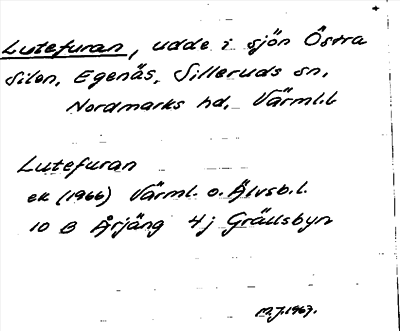 Lutefuran, udde i sjön Östra
Silen, Egenäs, Silleruds sn,
Nordmarks hd, Värml.l.
Lutefuran
ek (1966) Värml. o. Älvsb.l.
10 B Årjäng 4j Grällsbyn
M.J. 1967.